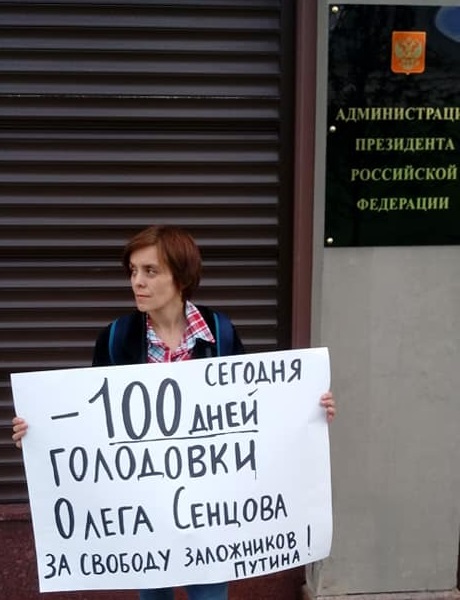 АДМИНИСТРАЦИ
ПРЕЗИДЕНТА
РОССИЙСКОЙ
ФЕДЕРАЦИИ
СЕГОДНЯ
– 100 ДНЕЙ
ГОЛОДОВКИ
ОЛЕГА СЕНЦОВА
ЗА СВОБОДУ ЗАЛОЖНИКОВ
ПУТИНА!